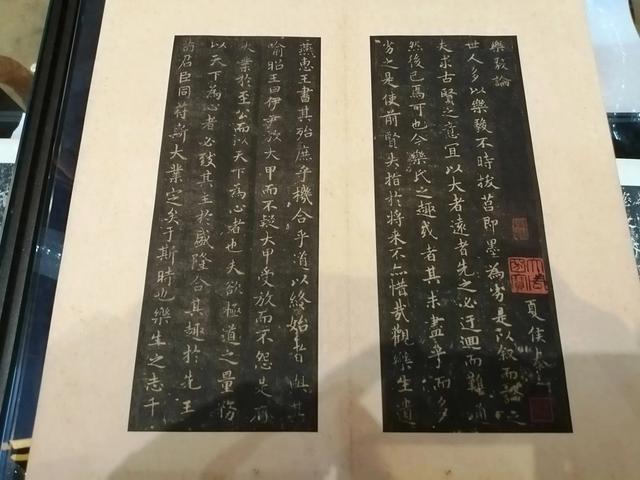 樂毅論
夏侯泰
世人多以樂毅不時拔莒即墨為劣是以叙而論之
夫求古賢之意宜以大者遠者先之必迂迴而難通
然後已焉可也今樂氏之趣或者其未盡乎而多
劣之是使前賢失指於將来不亦惜哉觀樂生遺
燕惠王書其殆庶乎機合乎道以終始者與其
喻昭王曰伊尹放大甲而不疑大甲受放而不怨是存
大業於至公而以天下為心者也夫欲極道之量務
以天下為心者必致其主於盛隆合其趣於先王
苟君臣同符斯大業定矣于斯時也樂生之志千